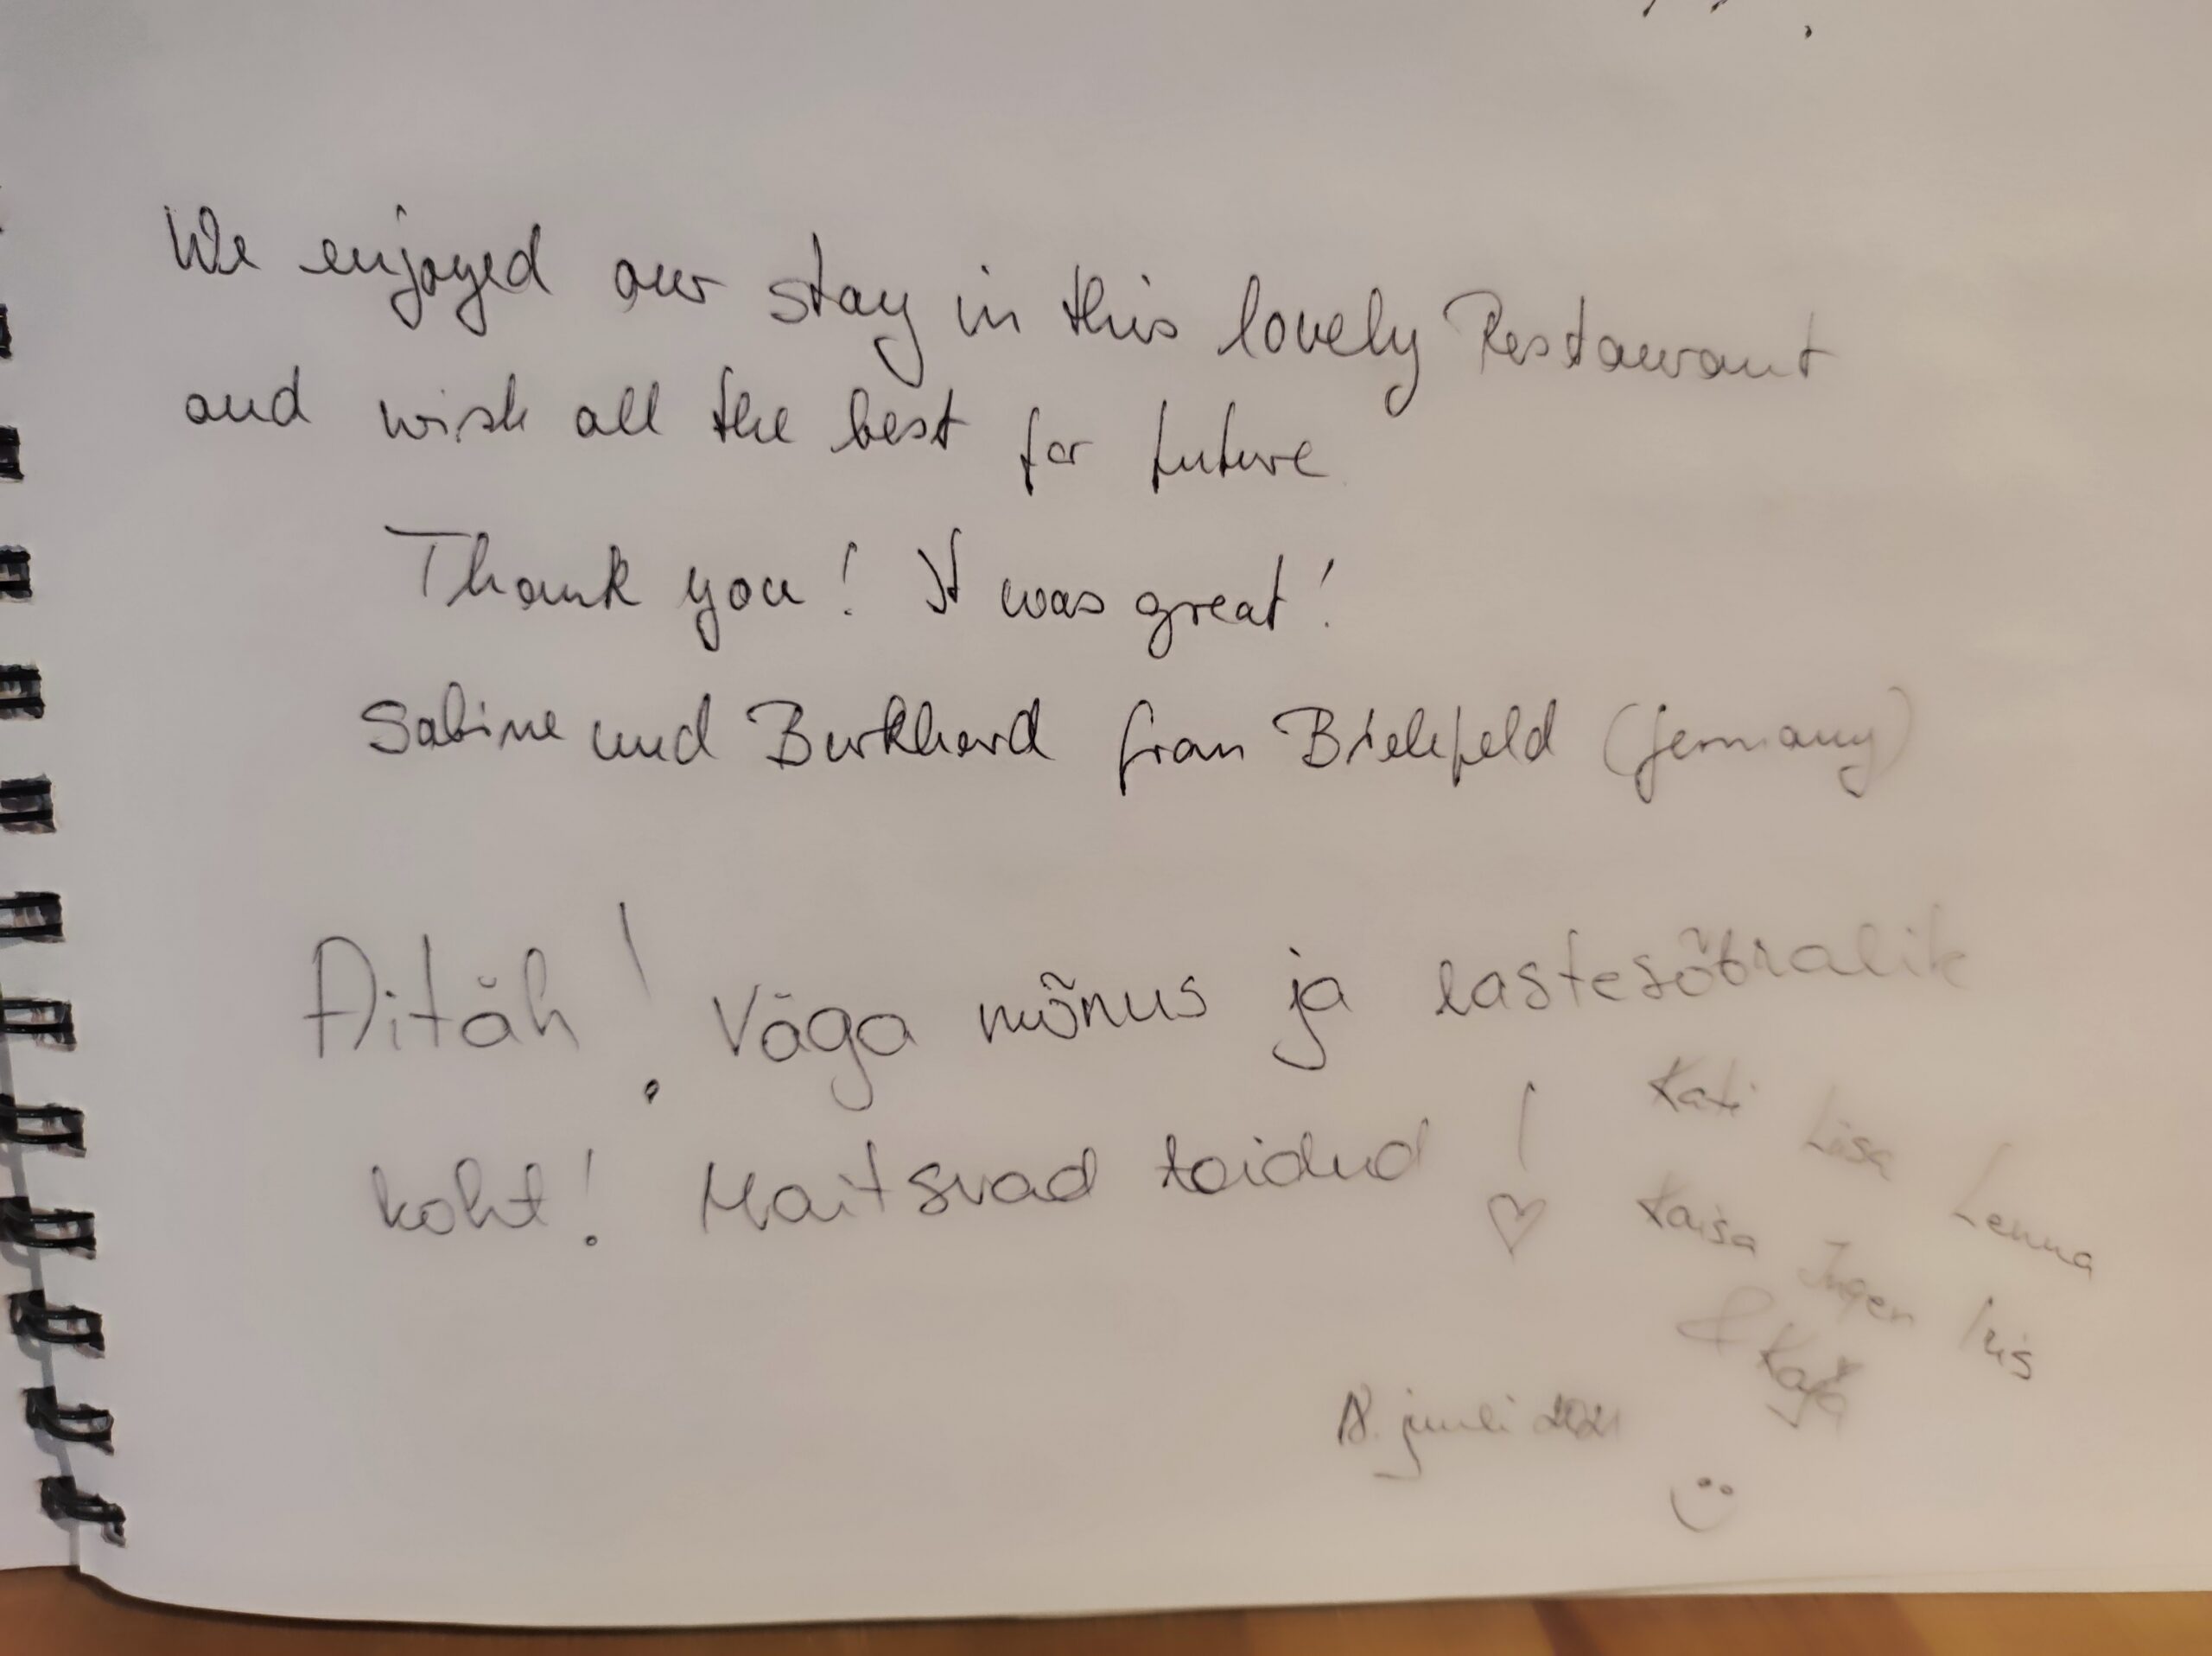 We enjoyed our stay in this lovely Restaurant
and wish all the best for future
Thank you! It was great!
Sabine und Burkhard from Bielefeld (Germany)
Aitäh! Väga mõnus ja lastesõbralik
koht! Maitsvad toidud!
Kati Liisa Lenna
Kaisa Iris
& Kaja
juuli 2021